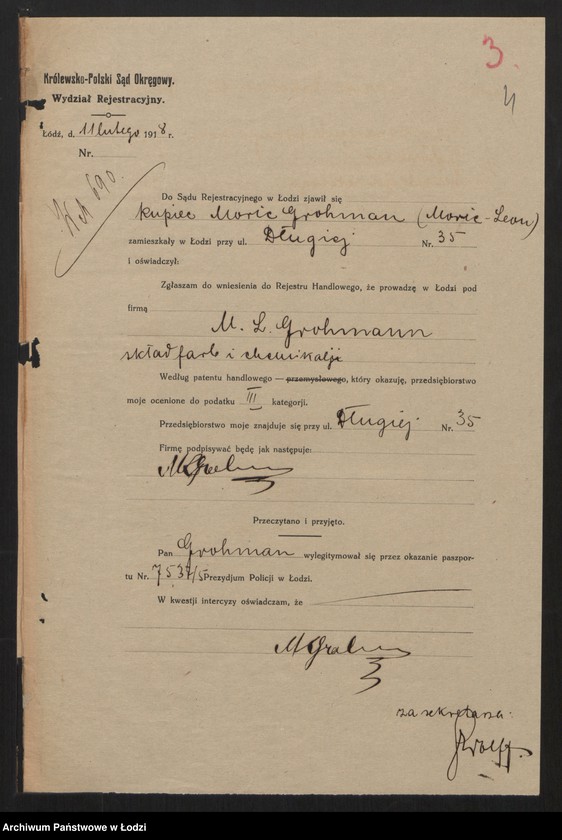 3.
4
Królewsko-Polski Sąd Okręgowy.
Wydział Rejestracyjny.
Łódź, d. 11 lutego 1918 r.
Nr.
690.
Do Sądu Rejestracyjnego w Łodzi zjawił się
kupiec Moric Grohman (Moric-Leon)
zamieszkały w Łodzi przy ul. Długiej Nr. 35
i oświadczył:
Zgłaszam do wniesienia do Rejestru Handlowego, że prowadzę w Łodzi pod
firmą
M. L. Grohmann
skład farb i chemikalji
Według patentu handlowego — przemysłowego, który okazuję, przedsiębiorstwo
moje ocenione do podatku III kategorji.
Przedsiębiorstwo moje znajduje się przy ul. Długiej. Nr. 35
Firmę podpisywać będę jak następuje:
Przeczytano i przyjęto.
Pan Grohman wylegitymował się przez okazanie paszpor-
tu Nr. 7537/5 Prezydjum Policji w Łodzi.
W kwestji intercyzy oświadczam, że
za sekretarza:
Archiwum Państwowe w Łodzi